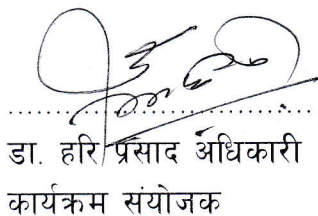 डा. हरि प्रसाद अधिकारी
कार्यक्रम संयोजक